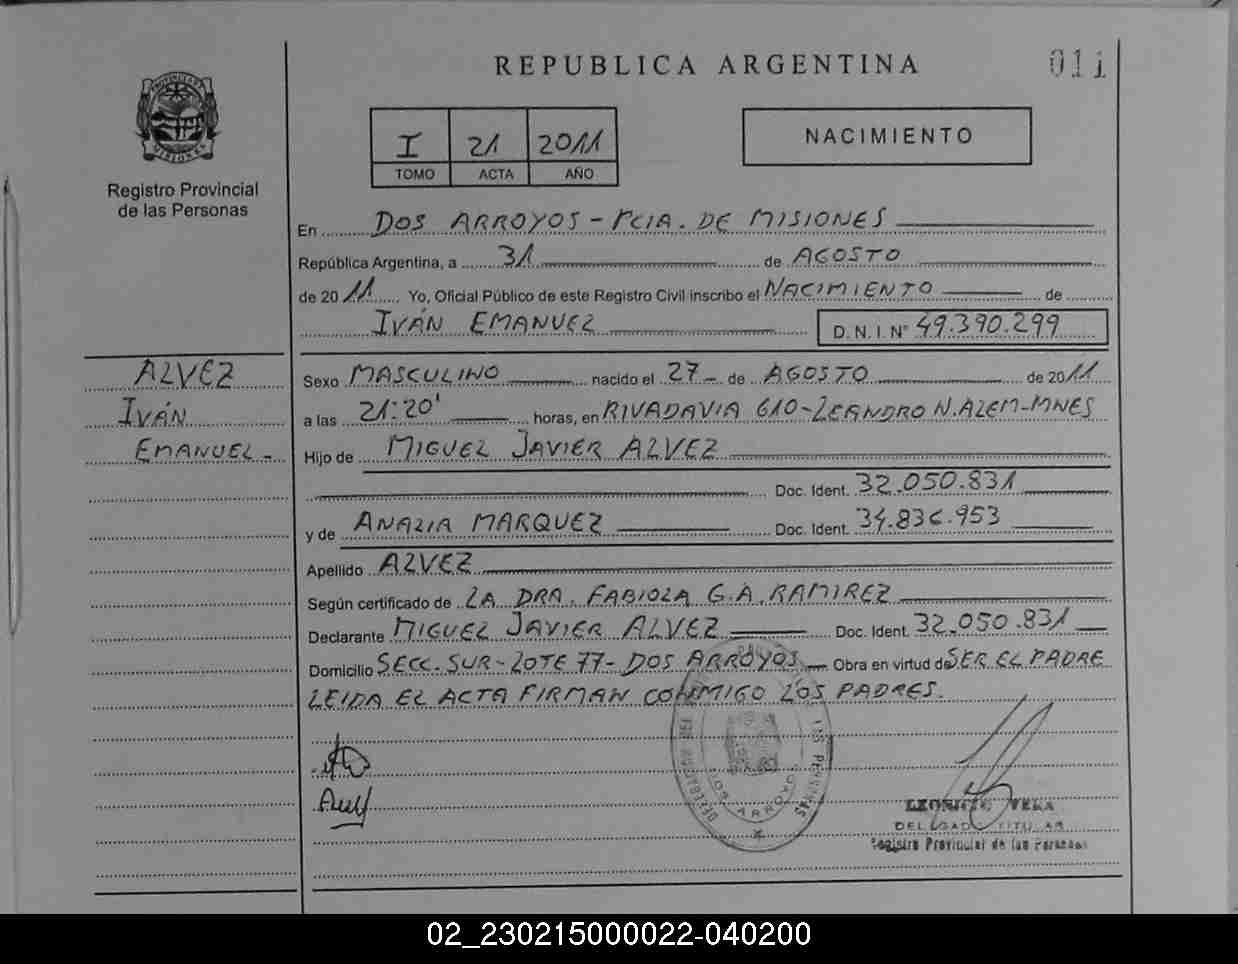 REPUBLICA ARGENTINA
011
PROVINCIA DE
MISIONES
Registro Provincial
de las Personas
I 21 2011
TOMO ACTA AÑO
NACIMIENTO
En DOS ARROYOS - PCIA. DE MISIONES
República Argentina, a 31 de AGOSTO
de 2011 Yo, Oficial Público de este Registro Civil inscribo el NACIMIENTO de
IVÁN EMANUEL D.N.I. N° 49.390.299
ALVEZ
IVÁN
EMANUEL -
Sexo MASCULINO nacido el 27 - de AGOSTO de 2011
a las 21:20' horas, en RIVADAVIA 610 - LEANDRO N. ALEM - MNES
Hijo de MIGUEL JAVIER ALVEZ
Doc. Ident. 32.050.831
y de ANALIA MARQUEZ Doc. Ident. 34.836.953
Apellido ALVEZ
Según certificado de LA DRA. FABIOLA G.A. RAMIREZ
Declarante MIGUEL JAVIER ALVEZ Doc. Ident. 32.050.831
Domicilio SECC. SUR - LOTE 77 - DOS ARROYOS Obra en virtud de SER EL PADRE
LEIDA EL ACTA FIRMAN CONMIGO LOS PADRES.
DOS ARROYOS
VERA
DELEGADO TITULAR
Registro Provincial de las Personas
02_230215000022-040200